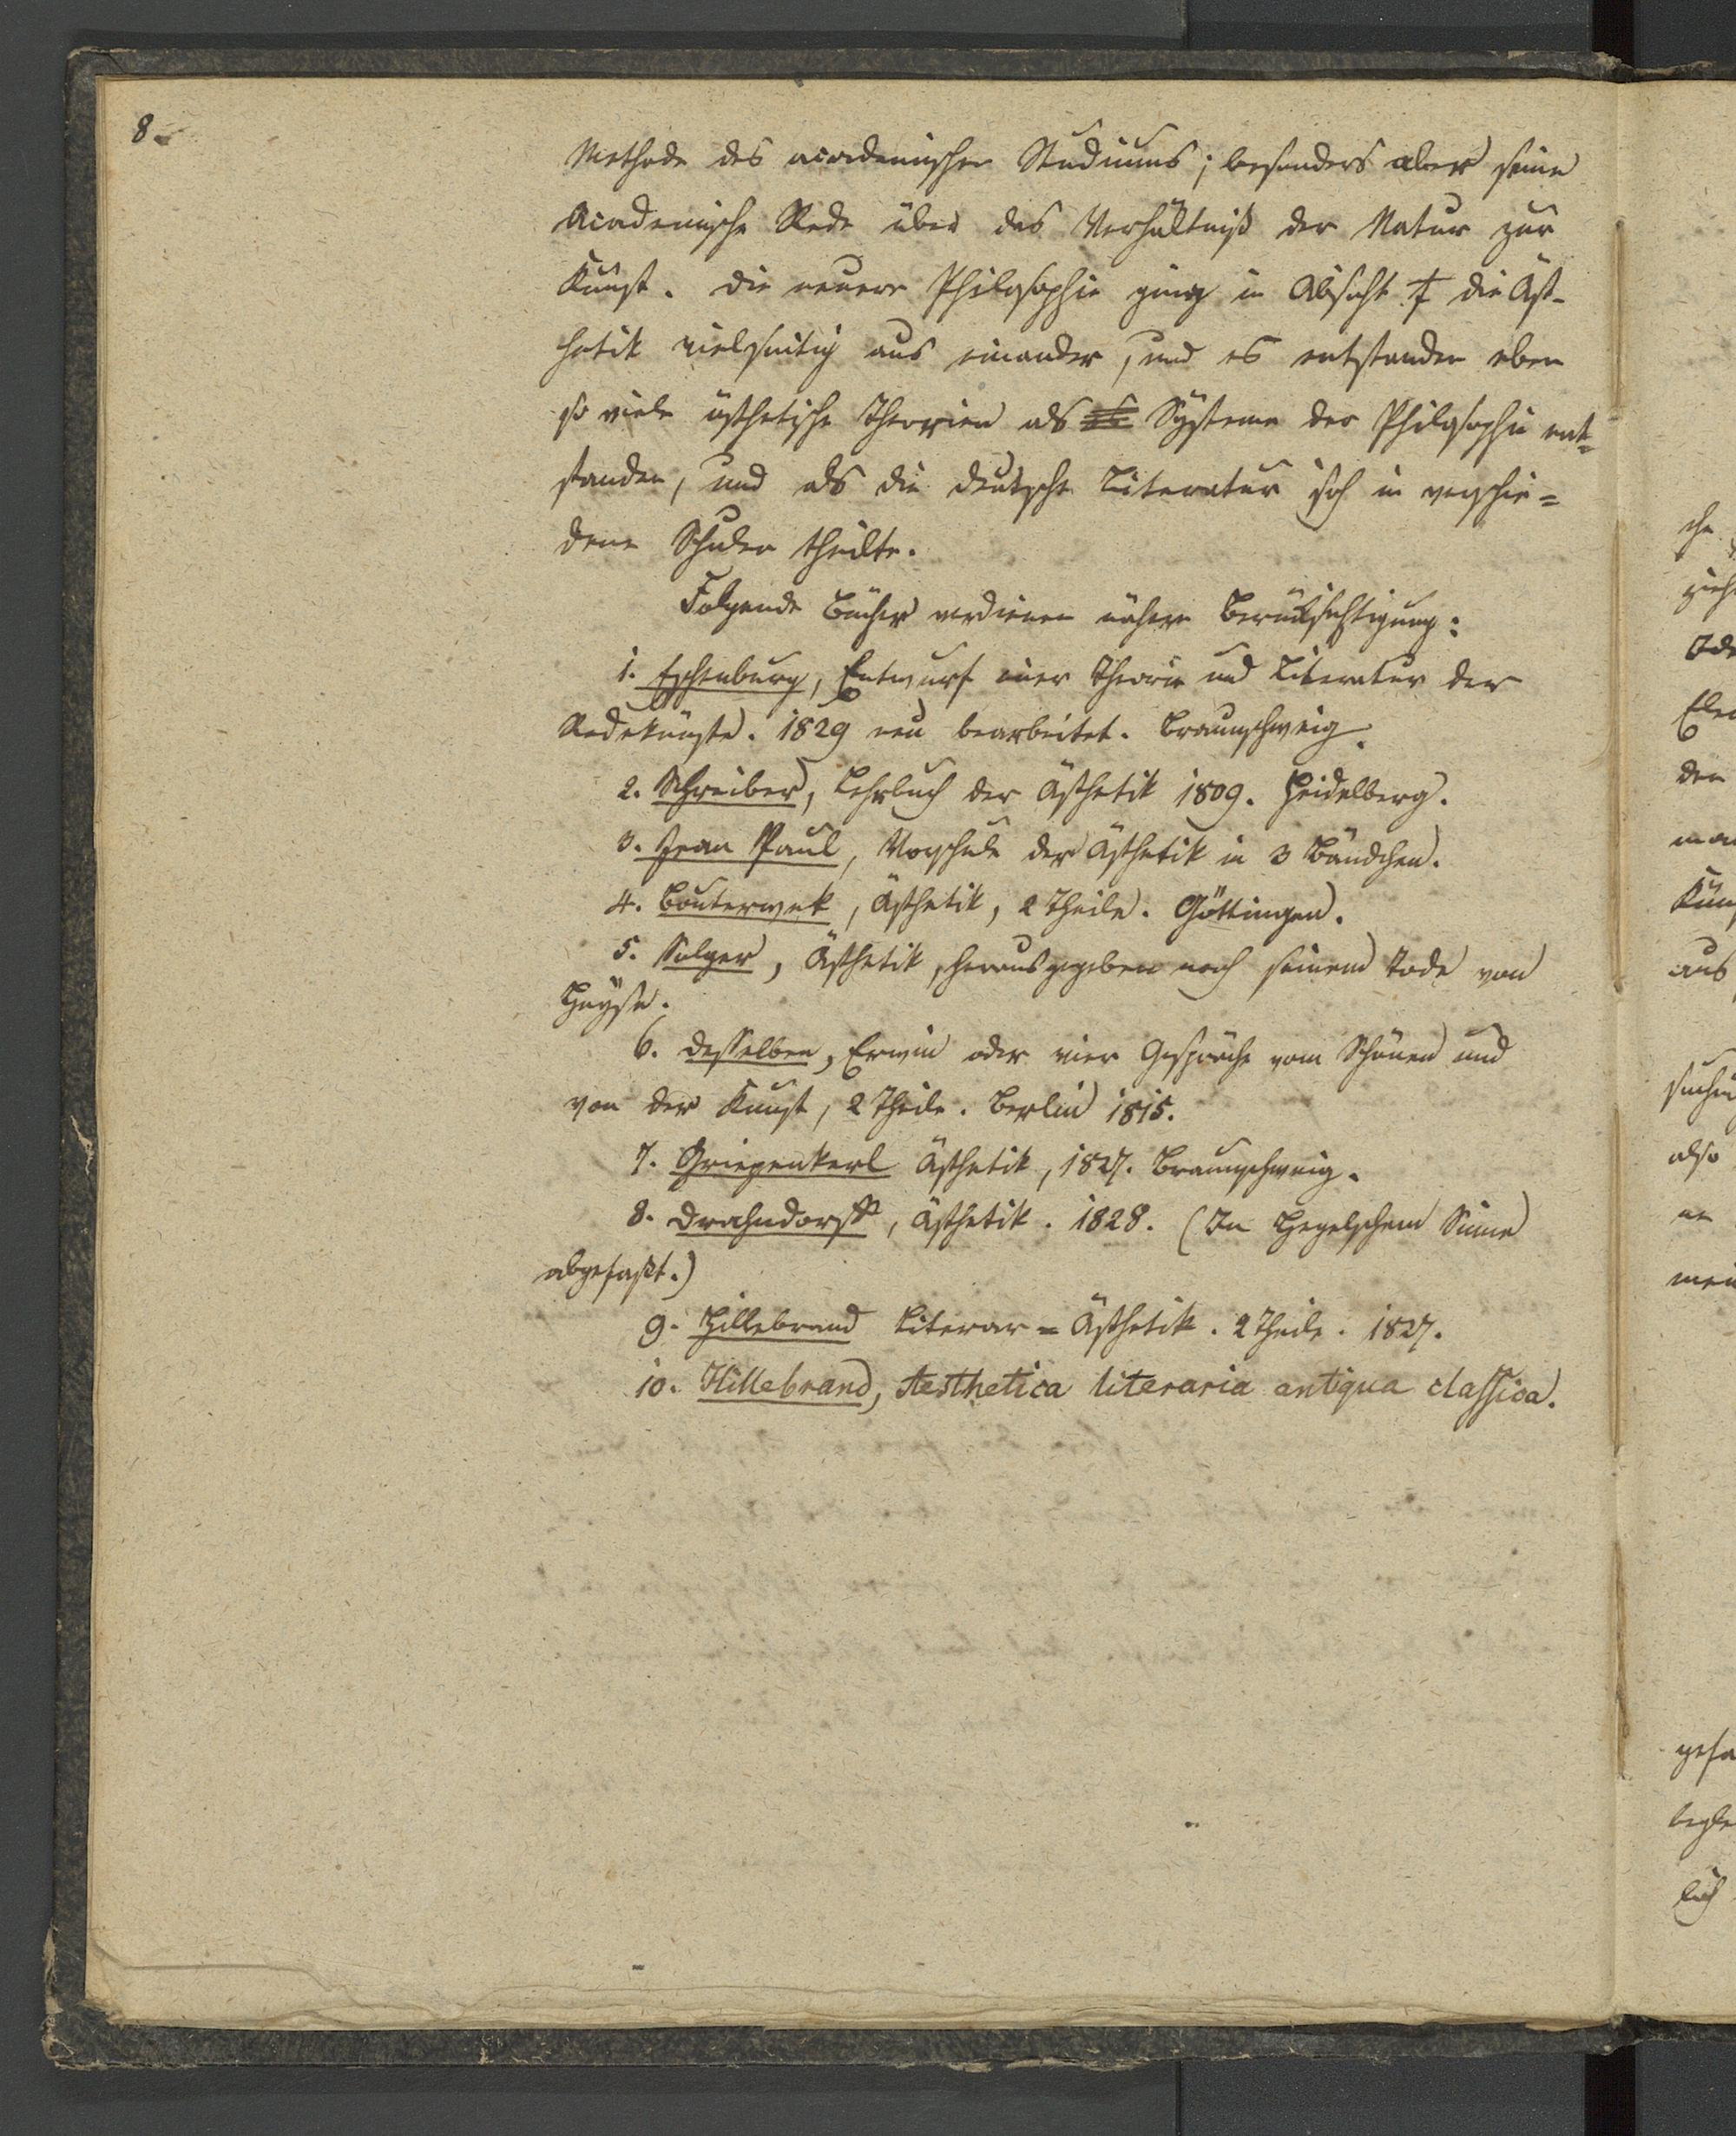 8.
Methode des academischen Studiums; besonders aber seine
Academische Rede über das Verhältniß der Natur zur
Kunst. Die neuere Philosophie ging in Absicht f die Äst-
hetik vielseitig aus einander, und es entstanden eben
so viele ästhetische Theorien als Systeme der Philosophie ent-
standen, und als die deutsche Literatur sich in verschie=
dene Schulen theilte.
Folgende Bücher verdienen nähere Berücksichtigung:
1. Eschenburg, Entwurf einer Theorie und Literatur der
Redekünste. 1829 neu bearbeitet. Braunschweig.
2. Schreiber, Lehrbuch der Ästhetik 1809. Heidelberg.
3. Jean Paul, Vorschule der Ästhetik in 3 Bändchen.
4. Bouterwek, Ästhetik, 2 Theile. Göttingen.
5. Solger, Ästhetik, herausgegeben nach seinem Tode von
Heyse.
6. desselben, Erwin oder vier Gespräche vom Schönen und
von der Kunst, 2 Theile. Berlin 1815.
7. Griepenkerl Ästhetik, 1827. Braunschweig.
8. Drahndorff, Ästhetik. 1828. (In Hegelschem Sinne
abgefaßt.)
9. Hillebrand Literar=Ästhetik. 2 Theile. 1827.
10. Hillebrand, Aesthetica literaria antiqua classica.